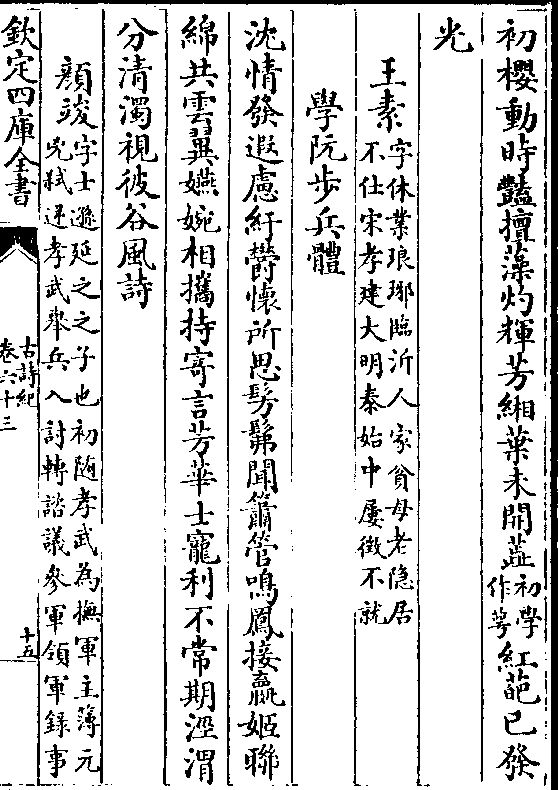 初櫻動時豔擅藻灼輝芳緗葉未開蘂初學作萼紅葩已發
光
王素字休業琅琊臨沂人家貧母老隐居
不仕宋孝建大明泰始中屢徵不就
學阮步兵體
沈情發遐慮紆鬱懷所思髣髴聞簫管鳴鳳接嬴姬聯
綿共雲翼嬿婉相攜持寄言芳華士寵利不常期涇渭
分清濁視彼谷風詩
顔竣字士遜延之之子也初隨孝武為撫軍主簿元
兇弑逆孝武舉兵入討轉諮議參軍領軍録事
欽定四庫全書
古詩紀
卷六十三
十五